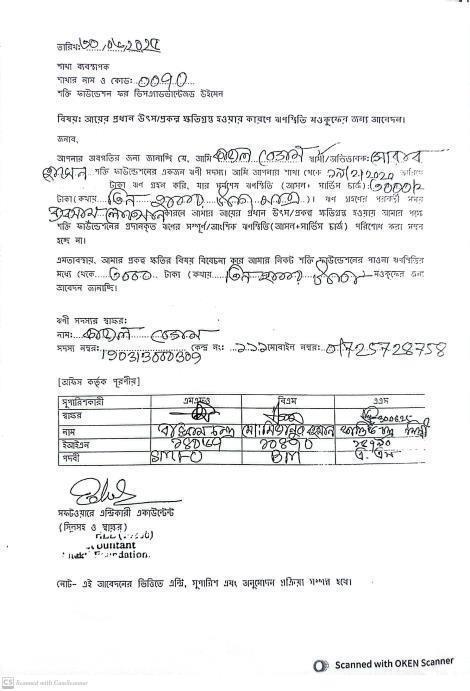 তারিখ: ৩০/০৬/২০২৫
শাখা ব্যবস্থাপক
শাখার নাম ও কোড: ০০৭০
শক্তি ফাউন্ডেশন ফর ডিসএ্যাডভান্টেজড উইমেন
বিষয়: আয়ের প্রধান উৎস/প্রকল্প ক্ষতিগ্রস্ত হওয়ার কারণে ঋণস্থিতি মওকুফের জন্য আবেদন।
জনাব,
আপনার অবগতির জন্য জানাচ্ছি যে, আমি বেগম স্বামী/অভিভাবক:
শক্তি ফাউন্ডেশনের একজন ঋণী সদস্য। আমি আপনার শাখা থেকে তারিখে
টাকা ঋণ গ্রহণ করি, যার সর্বশেষ ঋণস্থিতি (আসল+ সার্ভিস চার্জ): ৩০০০/২
টাকা (কথায় তিন হাজার টাকা মাত্র)। ঋণ গ্রহণের পরবর্তী সময়
কারনে আমার আয়ের প্রধান উৎস/প্রকল্প ক্ষতিগ্রস্ত হওয়ায় আমার পক্ষে
শক্তি ফাউন্ডেশনের প্রদানকৃত ঋণের সম্পূর্ণ/আংশিক ঋণস্থিতি(আসল+সার্ভিস চার্জ) পরিশোধ করা সম্ভব
হচ্ছে না।
এমতাবস্থায়, আমার প্রকল্প ক্ষতির বিষয় বিবেচনা করে আমার নিকট শক্তি ফাউন্ডেশনের পাওনা ঋণস্থিতির
মধ্য থেকে ৩০০০ টাকা (কথায় তিন হাজার টাকা) মওকুফের জন্য
আবেদন জানাচ্ছি।
ঋণী সদস্যর স্বাক্ষর:
নাম: বেগম
সদস্য নম্বর: 190313000309 কেন্দ্র নং: ১১১ মোবাইল নম্বর: 01725728758
[অফিস কর্তৃক পূরণীয়]
সুপারিশকারী এমএফও বিএম এএম
স্বাক্ষর
নাম
ইআইএন ২০৪৭০
পদবী SMFO BM এ. এম
সফটওয়ারে এন্ট্রিকারী একাউন্টেন্ট
(সিলসহ ও স্বাক্ষর)
নোট- এই আবেদনের ভিত্তিতে এন্ট্রি, সুপারিশ এবং অনুমোদন প্রক্রিয়া সম্পন্ন হবে।
CS Scanned with CamScanner
Scanned with OKEN Scanner